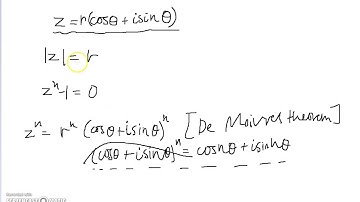 z = r(cosθ + isinθ)
|z| = r
zⁿ-1 = 0
zⁿ = rⁿ (cosθ + isinθ)ⁿ [De Moivres theorem]
(cosθ + isinθ)ⁿ = cosnθ + isinnθ